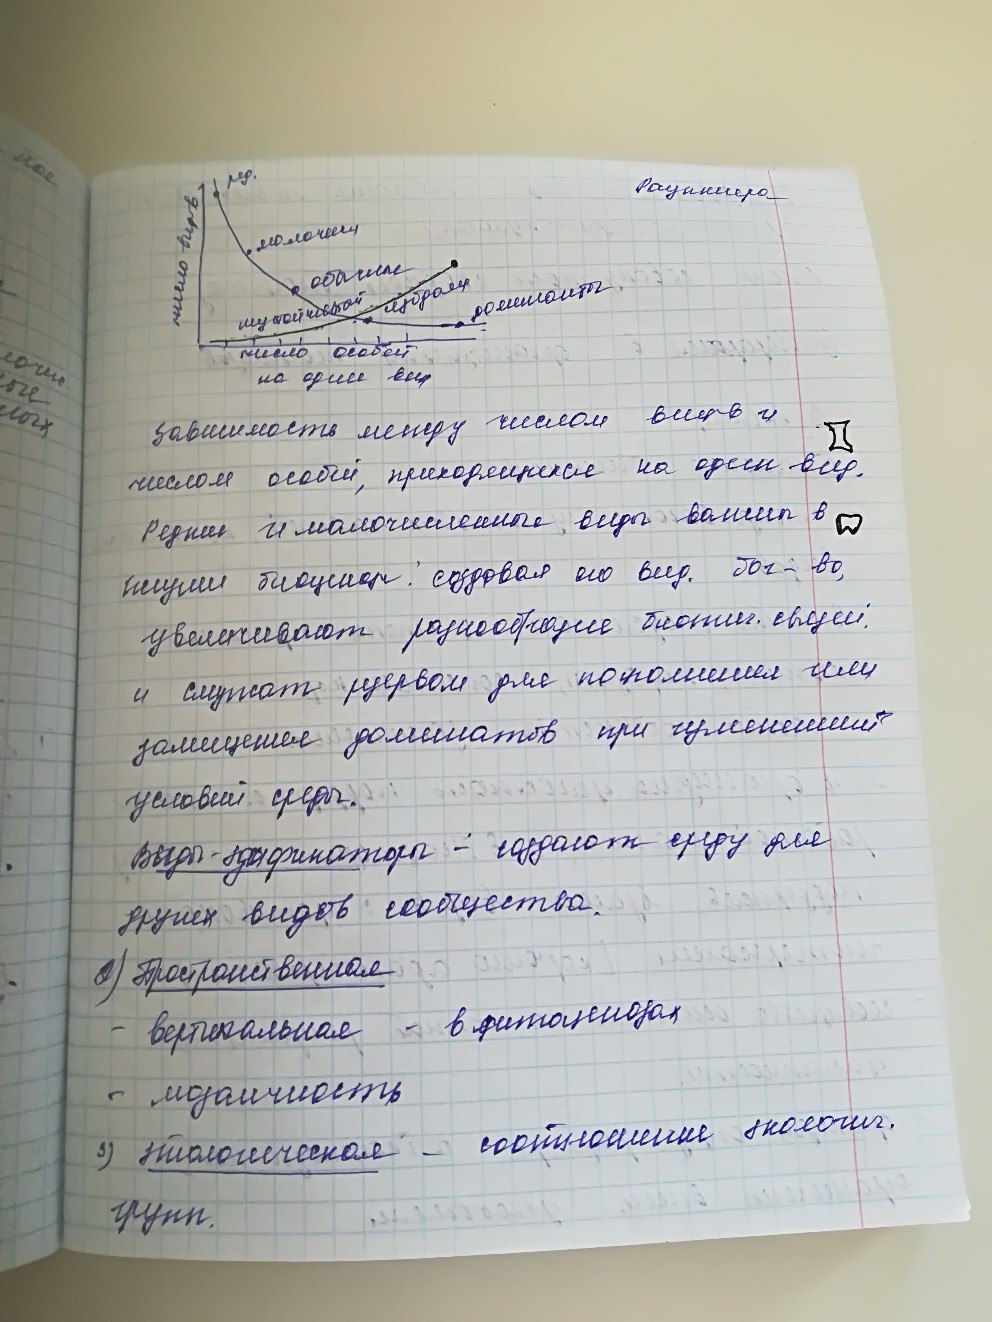 ред.
Раункиера
малочисл
обычные
число видов
доминанты
число особей
на один вид
Зависимость между числом видов и
числом особей, приходящихся на один вид.
Редкие и малочисленные виды важны в
жизни биоценоз: создовая его вид. бог-во,
увеличивают разнообразие биотич. связей,
и служат резервом для пополнения или
замещения доминатов при изменений
условий среды.
Виды-эдификаторы - создают среду для
других видов сообщества.
2) Пространственная
- вертикальная - в фитоценозах
- мозаичность
3) Экологическая - соотношение экологич.
групп.